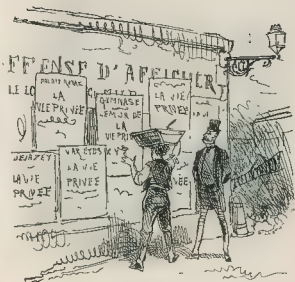 FFENSE D'AFFICHER
LE LO
PALAIS ROYAL
LA
VIE PRIVÉE
GYMNASE
LE MUR DE
LA
VIE PRIVÉE
LA VIE
PRIVÉE
DEJAZET
LA VIE
PRIVÉE
VARIETES
LA VIE
PRIVEE
VÉE